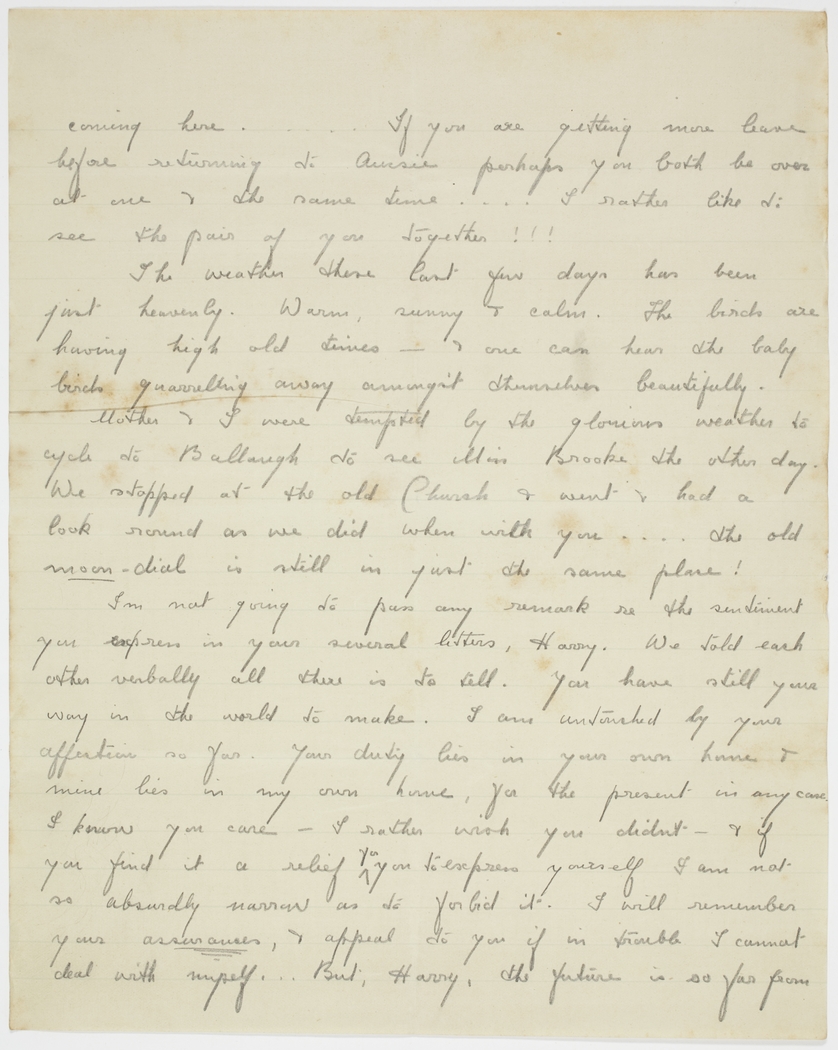 coming here . . . . . If you are getting more leave
before returning to Aussie perhaps you both be over
at one & the same time . . . . I rather like to
see the pair of you together !!!
The weather these last few days has been
just heavenly. Warm, sunny & calm. The birds are
having high old times — & one can hear the baby
birds quarrelling away amongst themselves beautifully.
Mother & I were tempted by the glorious weather to
cycle to Ballaugh to see Miss Brooke the other day.
We stopped at the old Church & went & had a
look round as we did when with you . . . . the old
moon-dial is still in just the same place !
I'm not going to pass any remark re the sentiment
you express in your several letters, Harry. We told each
other verbally all there is to tell. You have still your
way in the world to make. I am untouched by your
affection so far. Your duty lies in your own home &
mine lies in my own home, for the present in any case.
I know you care — I rather wish you didnt — & if
you find it a relief for you to express yourself I am not
so absurdly narrow as to forbid it. I will remember
your assurances, & appeal to you if in trouble I cannot
deal with myself... But, Harry, the future is so far from